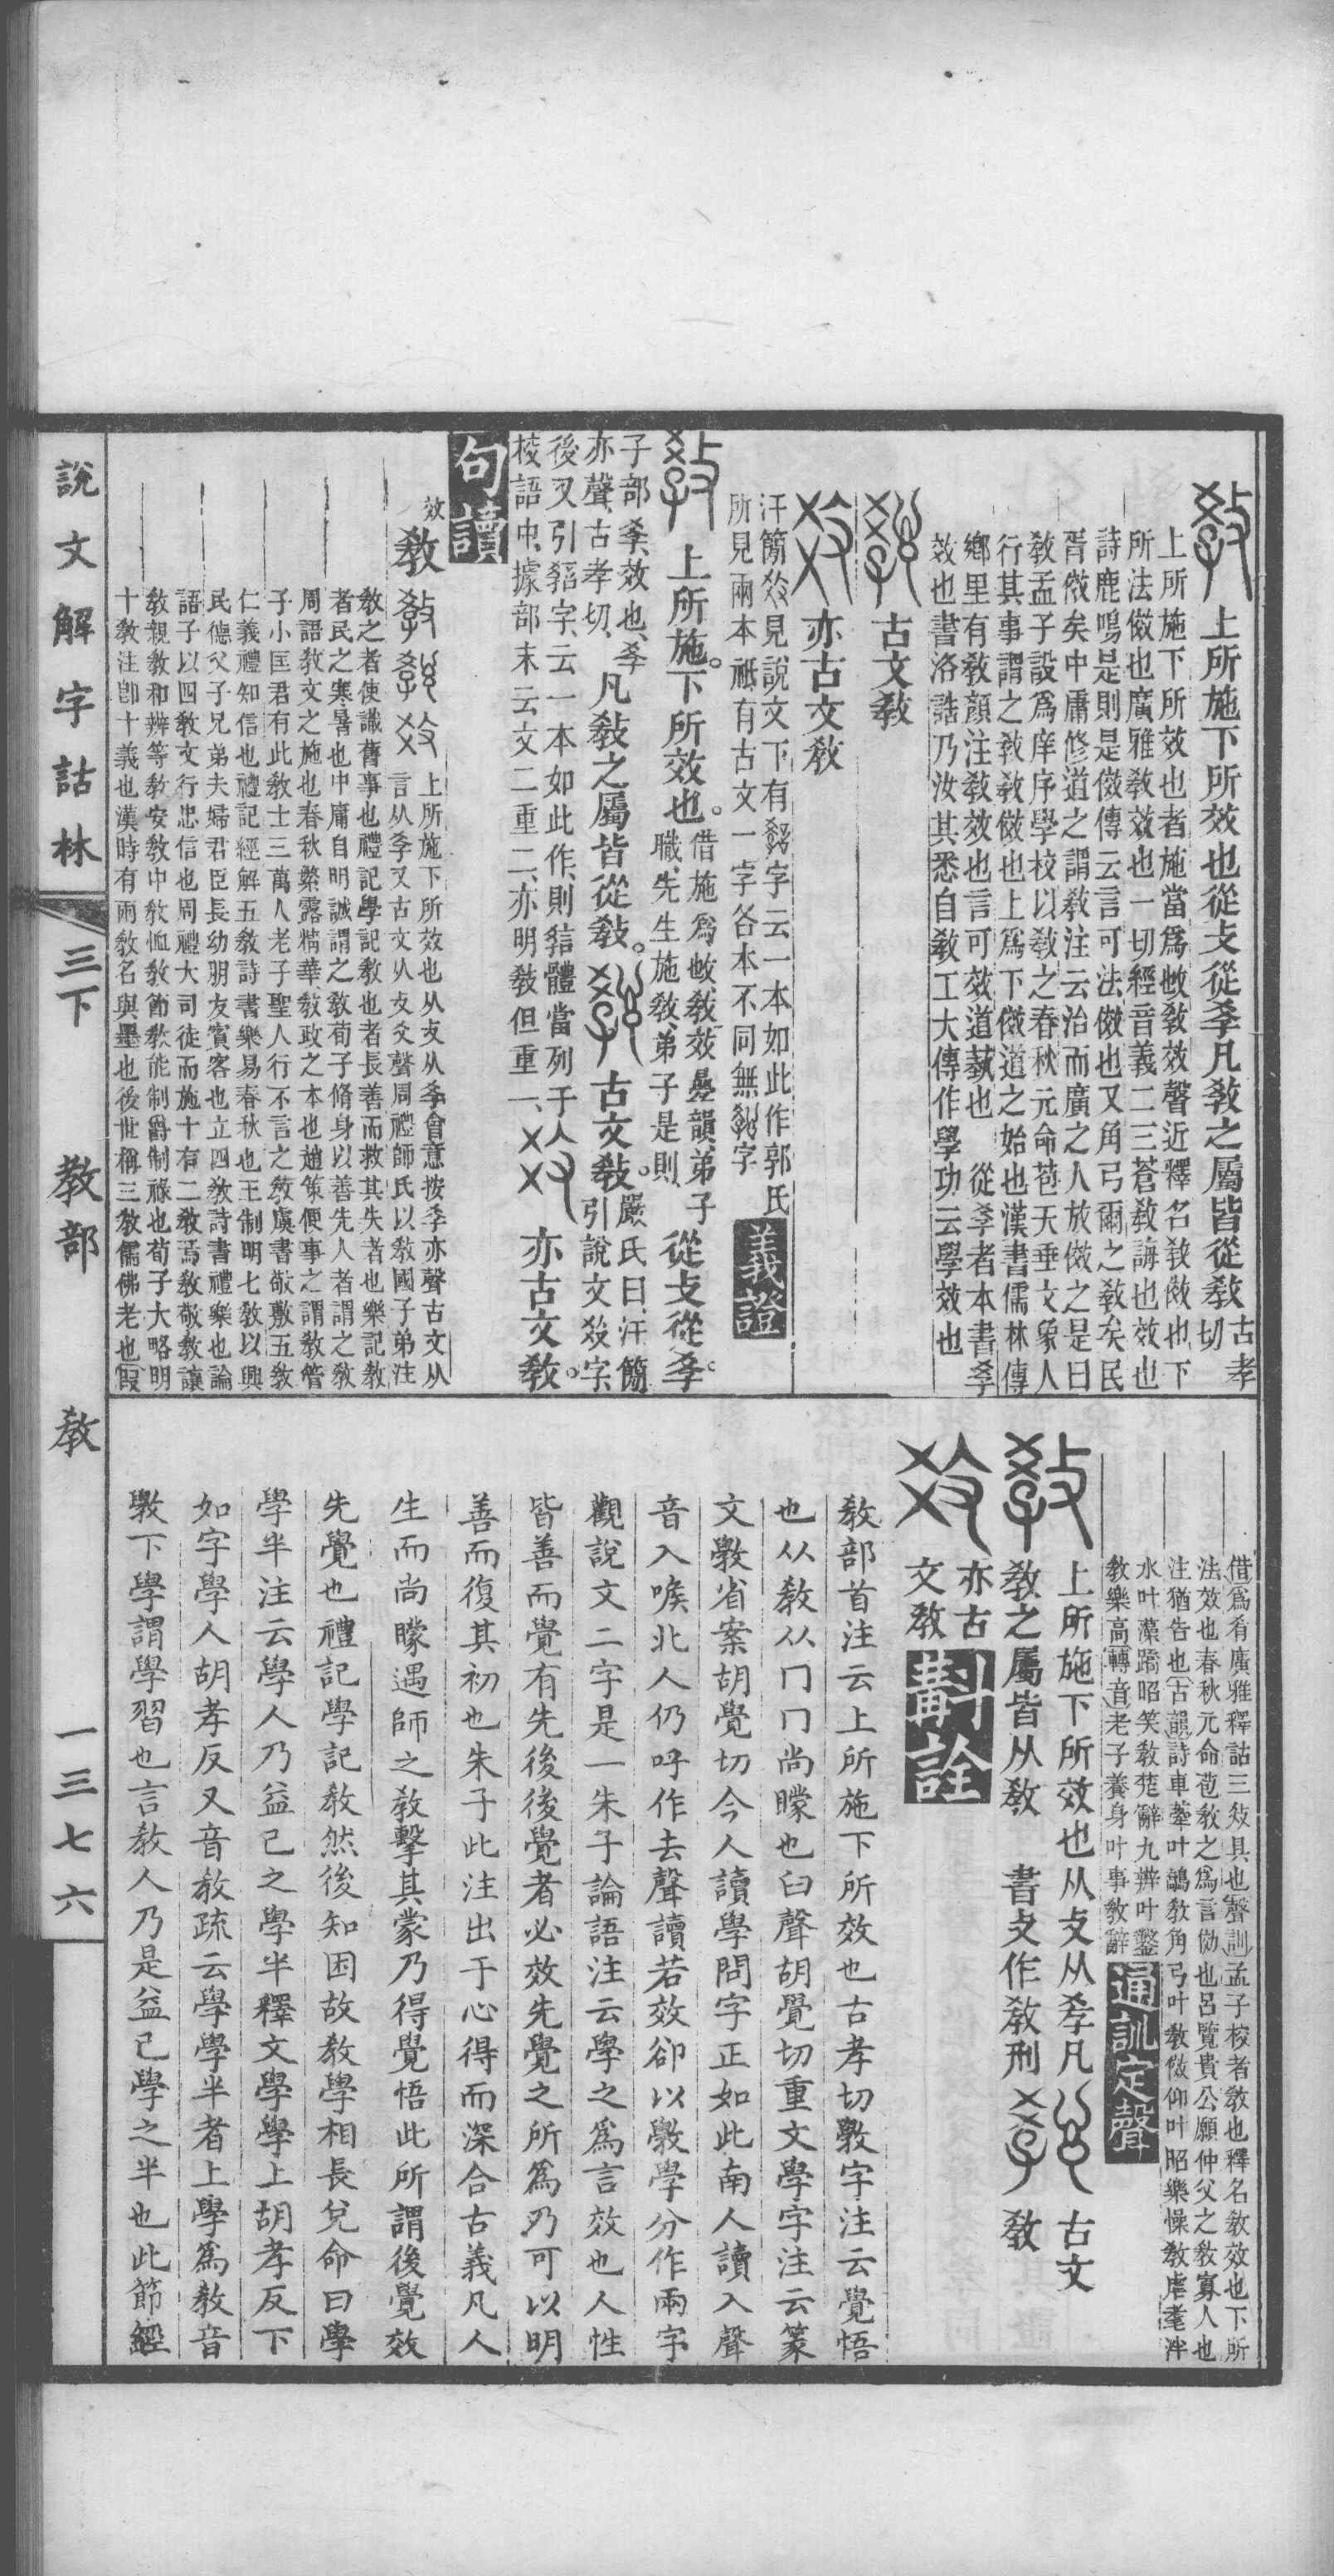 說文解字詁林
三下
教部
教
一三七六
上所施下所效也從攴從孝凡教之屬皆從教古孝切
上所施下所效也者施當爲𢻱教效聲近釋名教傚也下
所法傚也廣雅教效也一切經音義二三蒼教誨也效也
詩鹿鳴是則是傚傳云言可法傚也又角弓爾之教矣民
胥傚矣中庸修道之謂教注云治而廣之人放傚之是曰
教孟子設爲庠序學校以教之春秋元命苞天垂文象人
行其事謂之教教傚也上爲下傚道之始也漢書儒林傳
鄉里有教顏注教效也言可效道藝也 從孝者本書孝
效也書洛誥乃汝其悉自教工大傳作學功云學效也
古文教
亦古文教
汗簡 見說文下有 字云一本如此作郭氏
所見兩本祇有古文一字各本不同無 字
義證
上所施。下所效也。借施爲𢻱、教效疊韻、弟子
職、先生施教、弟子是則、從攴從孝。
子部孝、效也、孝
亦聲、古孝切、凡教之屬皆從教。 古文教。嚴氏曰、汗簡
引說文 字、
後又引 字、云一本如此作、則 體當列于
校語中、據部末云文二重二、亦明教但重一、 亦古文教。
句讀
效
教
上所施下所效也从攴从孝會意按孝亦聲古文从
言从孝又古文从攴爻聲周禮師氏以教國子弟注
教之者使識舊事也禮記學記教也者長善而救其失者也樂記教
者民之寒暑也中庸自明誠謂之教荀子脩身以善先人者謂之教
周語教文之施也春秋繁露精華教政之本也趙策便事之謂教管
子小匡君有此教士三萬人老子聖人行不言之教虞書敬敷五教
仁義禮知信也禮記經解五教詩書樂易春秋也王制明七教以興
民德父子兄弟夫婦君臣長幼朋友賓客也立四教詩書禮樂也論
語子以四教文行忠信也周禮大司徒而施十有二教焉教敬教讓
教親教和辨等教安教中教恤教節教能制爵制祿也荀子大略明
十教注卽十義也漢時有兩教名與墨也後世稱三教儒佛老也叚
借爲肴廣雅釋詁三 具也聲訓孟子校者教也釋名教效也下所
法效也春秋元命苞教之爲言傚也呂覽貴公願仲父之教寡人也
注猶告也古韻詩車舝叶鷮教角弓叶教傚仰叶昭樂懆教虐耄泮
水叶藻蹻昭笑教楚辭九辨叶鑿
教樂高轉音老子養身叶事教辭
通訓定聲
上所施下所效也从攴从孝凡 古文
教之屬皆从教 書攴作教刑 教
亦古
文教
斠詮
教部首注云上所施下所效也古孝切斆字注云覺悟
也从教从冂冂尚矇也臼聲胡覺切重文學字注云篆
文斆省案胡覺切今人讀學問字正如此南人讀入聲
音入喉北人仍呼作去聲讀若效卻以斆學分作兩字
觀說文二字是一朱子論語注云學之爲言效也人性
皆善而覺有先後後覺者必效先覺之所爲乃可以明
善而復其初也朱子此注出于心得而深合古義凡人
生而尚矇遇師之教擊其蒙乃得覺悟此所謂後覺效
先覺也禮記學記教然後知困故教學相長兌命曰學
學半注云學人乃益己之學半釋文學學上胡孝反下
如字學人胡孝反又音教疏云學學半者上學爲教音
斆下學謂學習也言教人乃是益己學之半也此節經